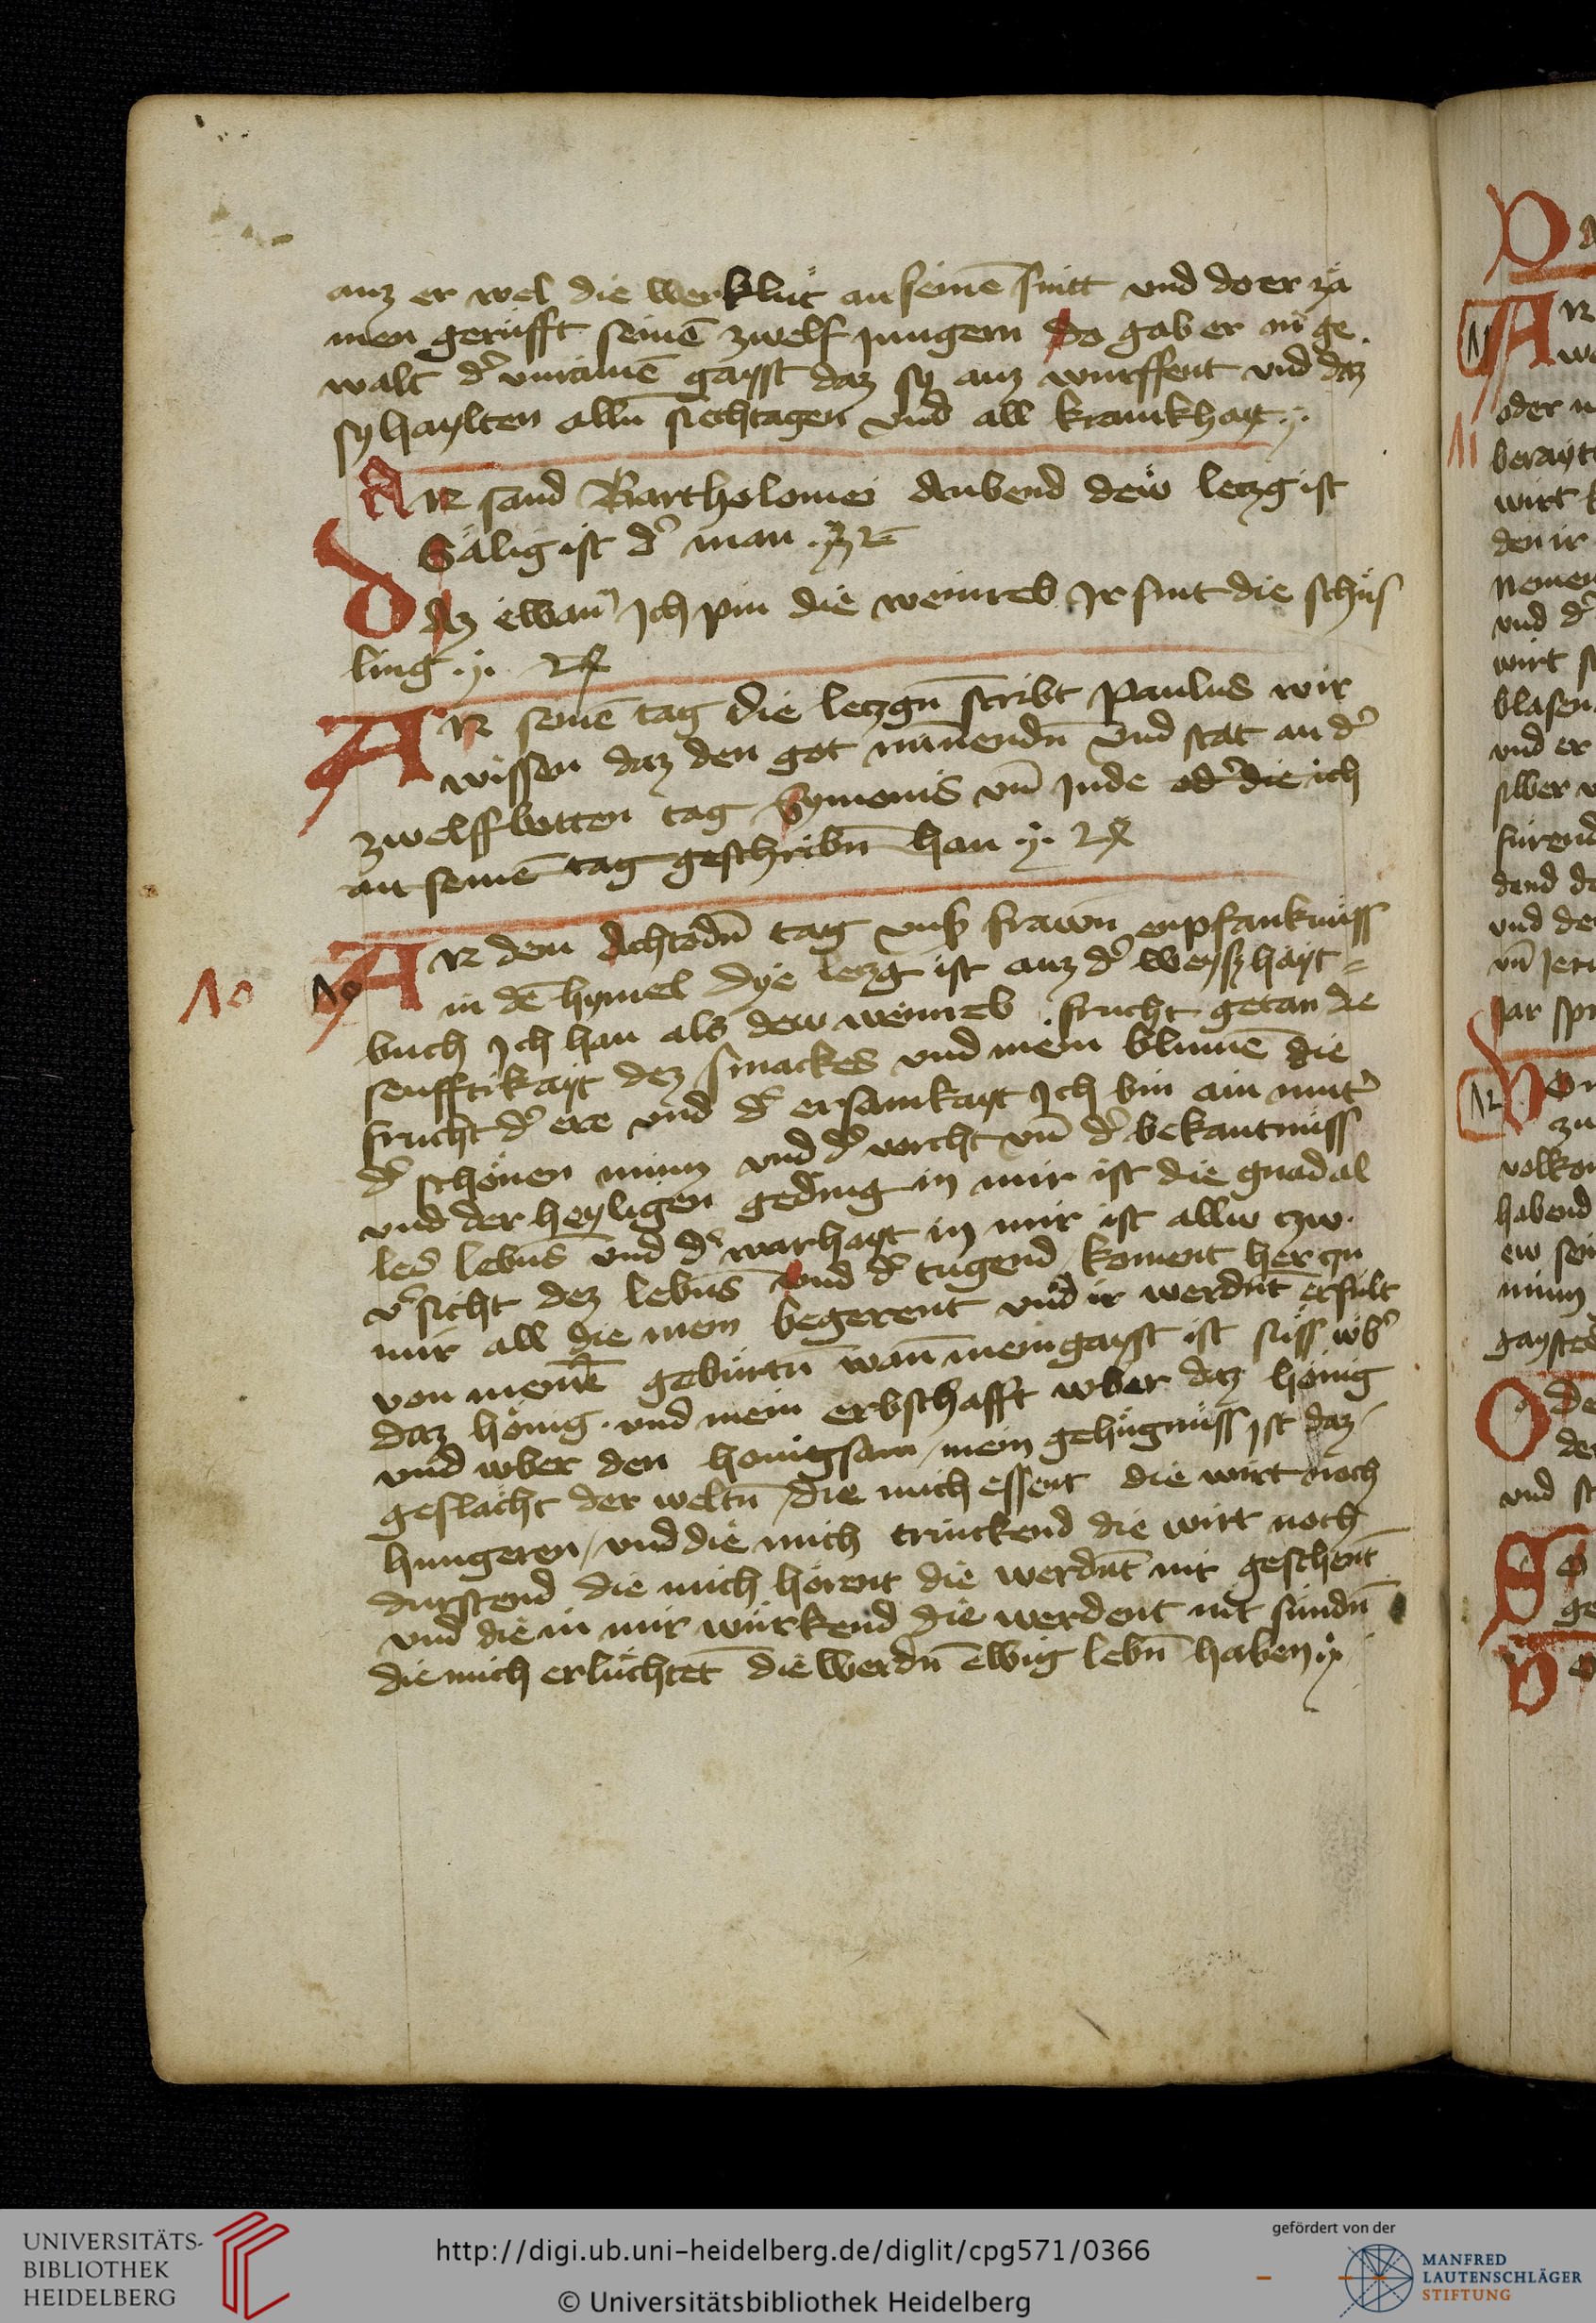 auz er wel die werklüt an seinē snitt vnd do er zä
men gerüfft seinē zwelf jungern do gab er in ge
walt dʼ vnrainē gayst daz sy auz wurffent vnd daz
sy haylten allū siechtagen vnd all krankhayt
AN sand Bartholomei Aubend dew leczg ist
Sälig ist dʼ man
Daz ewañ Ich pin die weinreb Ir sint die schüs
ling
AN seinē tag die leczgn̄ scribt Paulus wir
wissen daz den got minnendn̄ vnd stat an dʼ
zwelffbotten tag Symonis vn̄ Jude odʼ die ich
an seinē tag geschribn̄ han
10 10 AN den Achtodn̄ tag vnsʼ frawn̄ enpfanknüss
in dē hymel dye leczg ist auz dʼ weyszhayt
buch Ich han als dew weinreb frucht getan die
senfftikayt dez smackes vnd mein blumē die
frucht dʼ ere vnd dʼ ersamkayt Ich bin ain mutʼ
dʼ schönen minn vnd dʼ vorcht vn̄ dʼ bekantnüss
vnd der heyligen geding in mir ist die gnad al
les lebn̄s vnd dʼ warhayt in mir ist allw czw
vʼsicht dez lebn̄s vnd dʼ tugend koment her zu
mir all die mein begerent vnd ir werdn̄t erfült
von meinē gebürtn̄ wan̄ mein gayst ist süss wbʼ
daz hönig vnd mein erbschafft wber daz hönig
vnd wber den honigsam mein gehügnüss ist daz
geslächt der weltn̄ die mich essent die wirt noch
hungeren / vnd die mich trinckend die wirt noch
durstend die mich hörent die werdn̄t nit geschent
vnd die in mir würkend die werdent nit sündn̄
die mich erlüchtet die werdn̄ ewig lebn̄ haben
UNIVERSITÄTS-
BIBLIOTHEK
HEIDELBERG
http://digi.ub.uni-heidelberg.de/diglit/cpg571/0366
© Universitätsbibliothek Heidelberg
gefördert von der
MANFRED
LAUTENSCHLÄGER
STIFTUNG